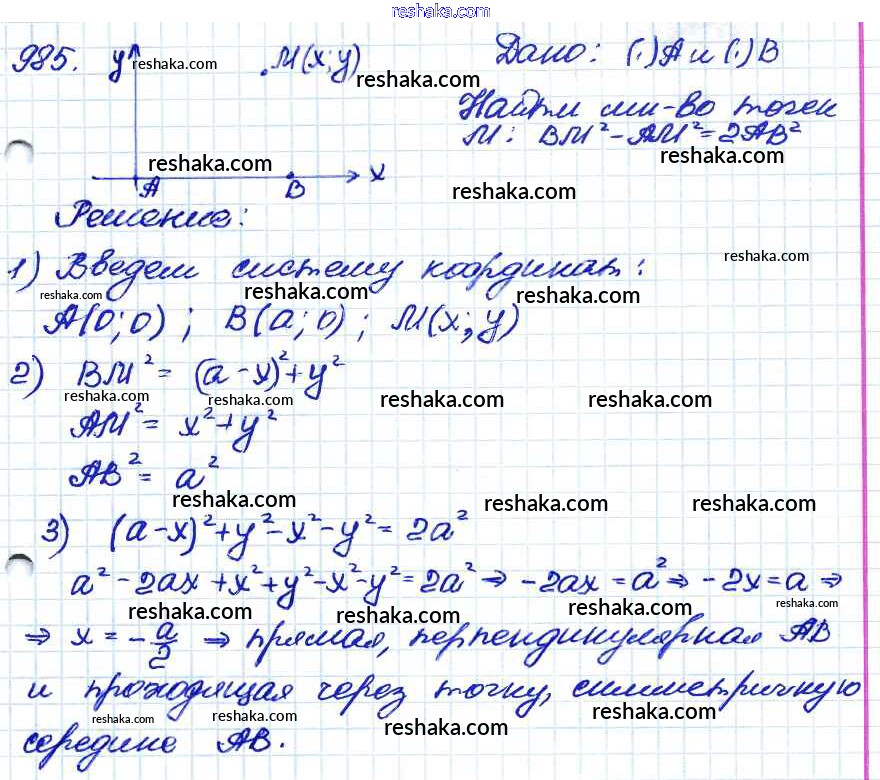 reshaka.com
985. y M(x;y) Дано: (.)A и (.)B
reshaka.com reshaka.com
Найти мн-во точек
M: BM² - AM² = 2AB²
reshaka.com reshaka.com
A B x
reshaka.com
Решение:
1) Введем систему координат:
reshaka.com
reshaka.com reshaka.com reshaka.com
A(0;0); B(a;0); M(x;y)
2) BM² = (a-x)² + y²
reshaka.com reshaka.com reshaka.com reshaka.com
AM² = x² + y²
AB² = a²
reshaka.com reshaka.com reshaka.com
3) (a-x)² + y² - x² - y² = 2a²
a² - 2ax + x² + y² - x² - y² = 2a² ⇒ -2ax = a² ⇒ -2x = a ⇒
reshaka.com reshaka.com reshaka.com reshaka.com
⇒ x = -a/2 ⇒ прямая, перпендикулярная AB
и проходящая через точку, симметричную
reshaka.com reshaka.com reshaka.com reshaka.com
середине AB.